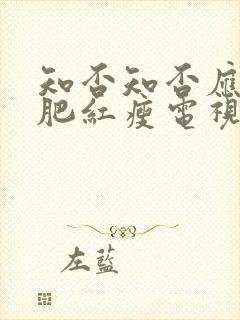 知否知否應
肥紅瘦電視
左藍